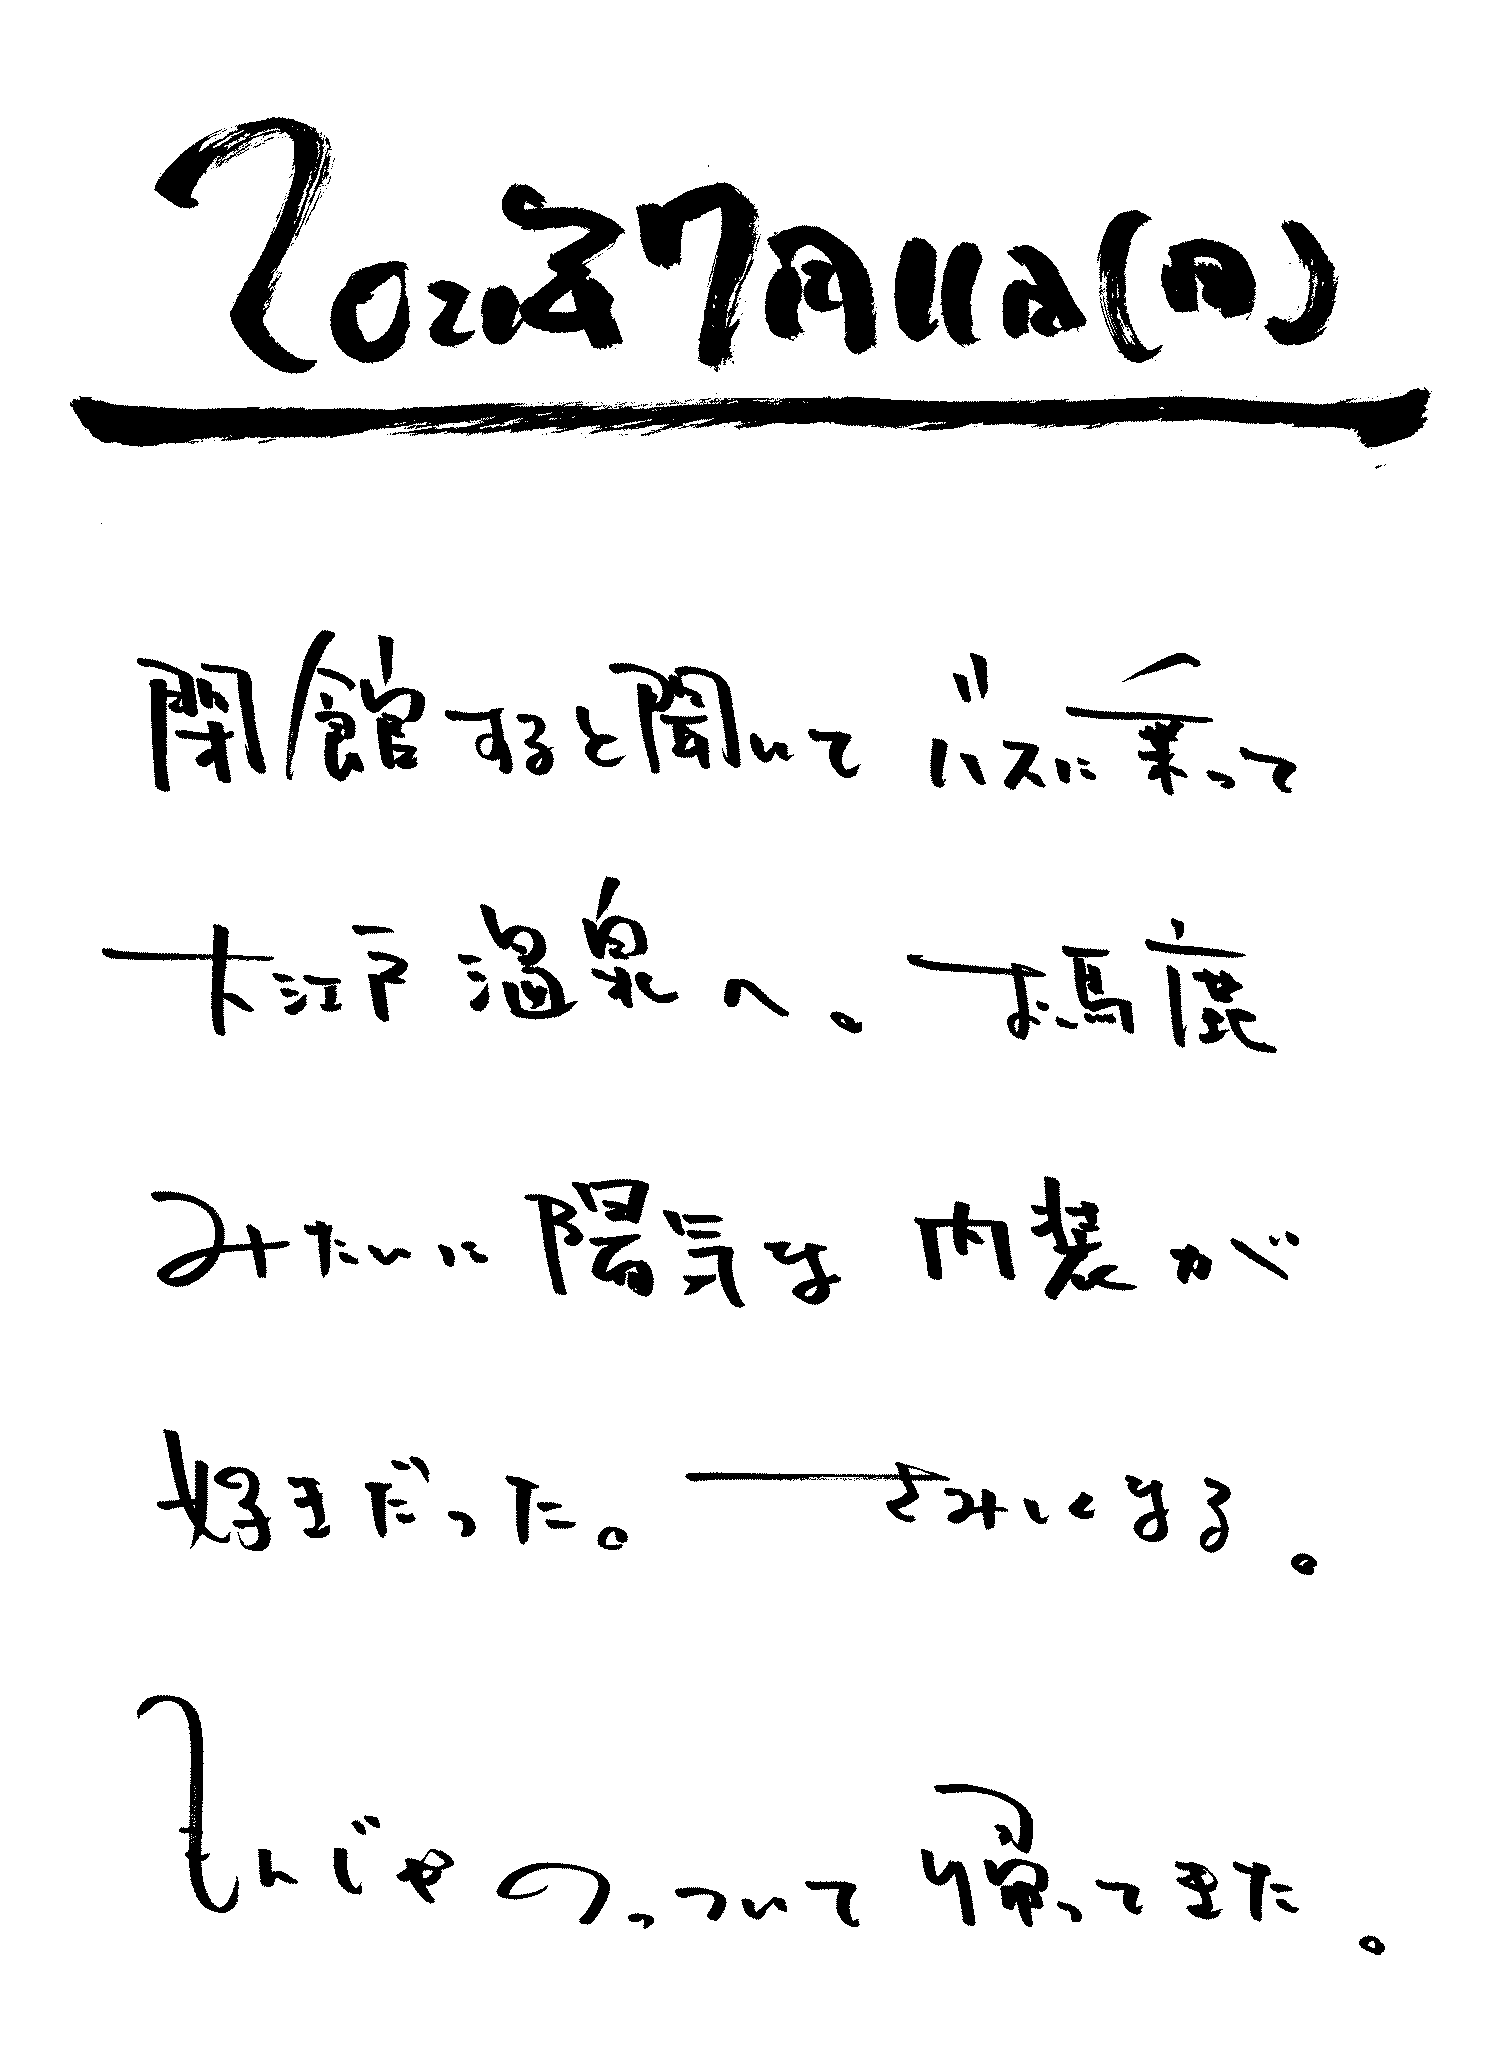 2021年7月11日(日)
閉館すると聞いて バスに乗って
大江戸温泉へ。お馬鹿
みたいに陽気な内装が
好きだった。さみしくなる。
もんじゃつっついて帰ってきた。